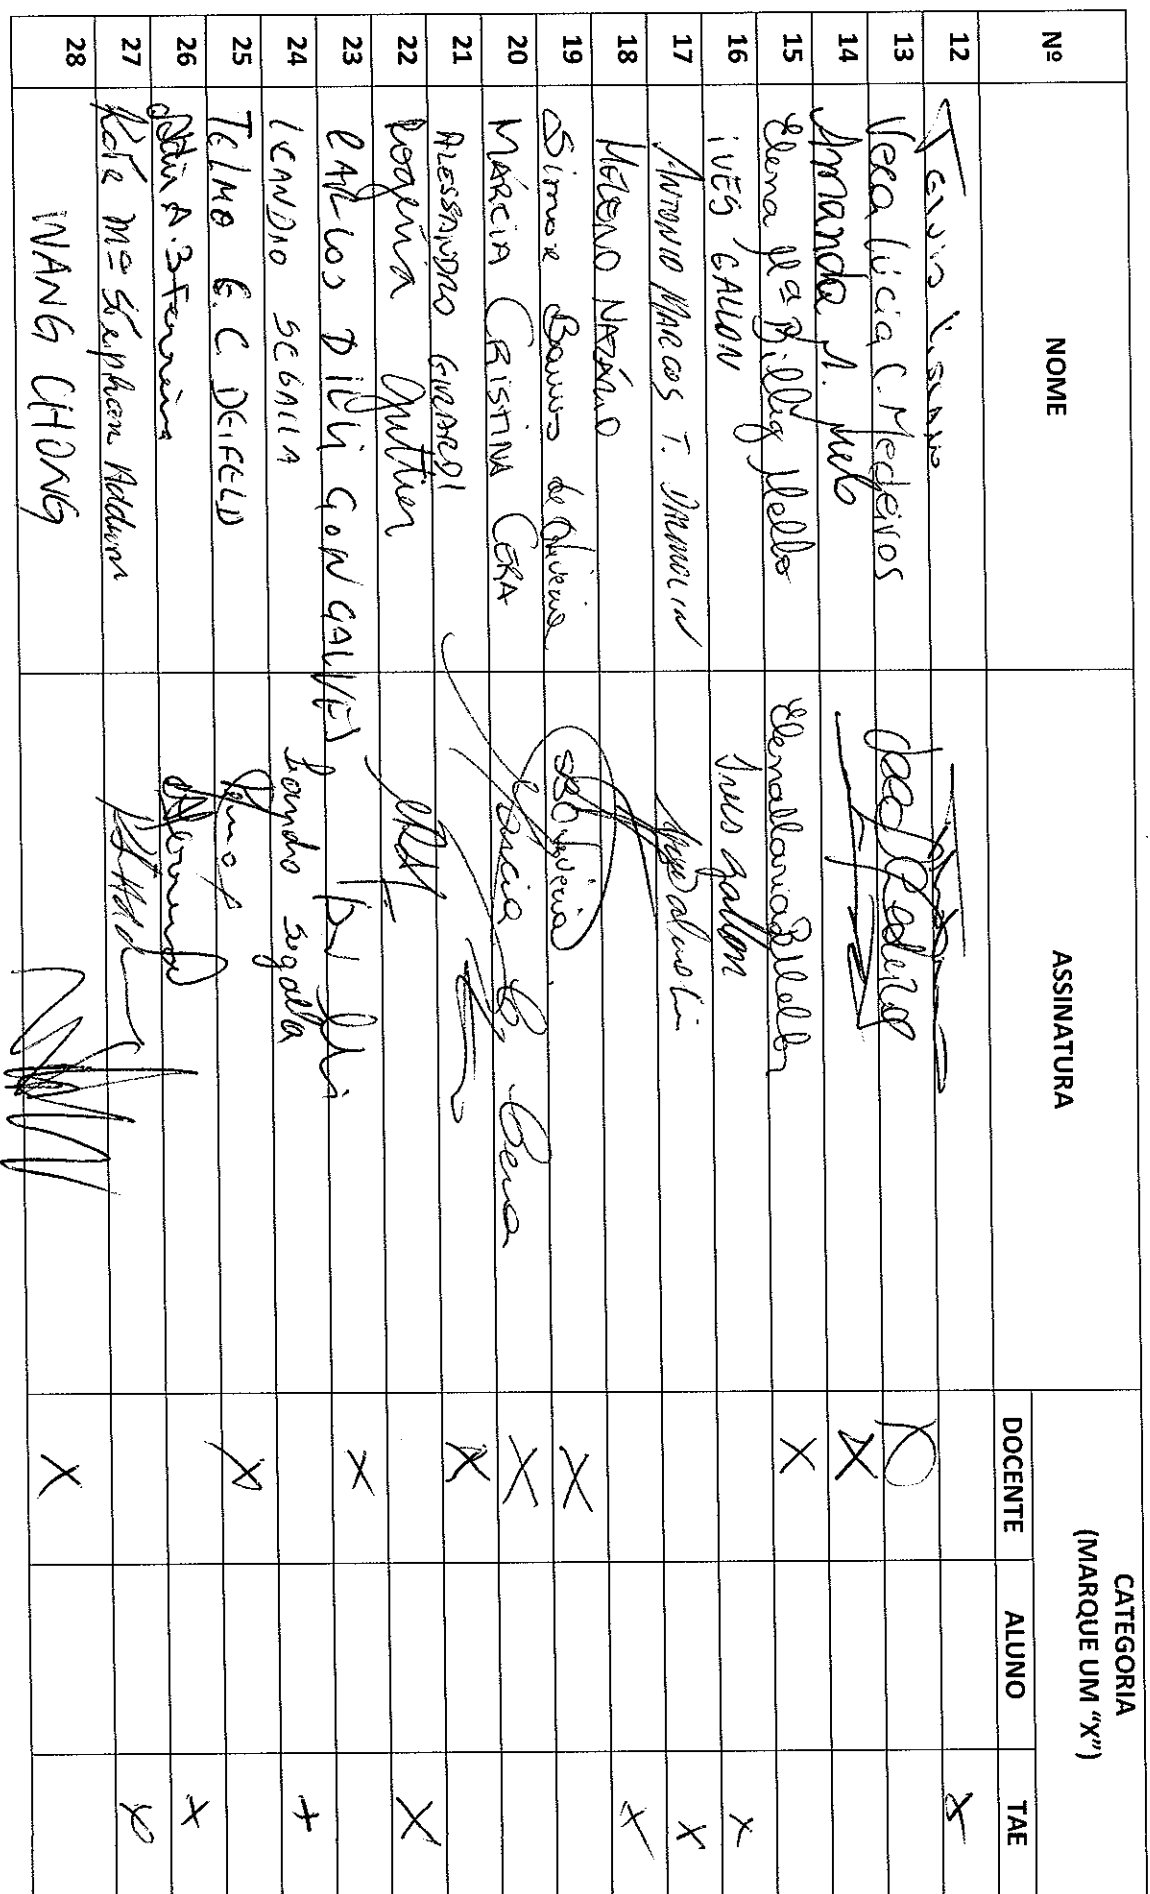 Nº NOME ASSINATURA CATEGORIA (MARQUE UM “X”)
DOCENTE ALUNO TAE
12 X
13 Vera Lúcia C. Medeiros
14 Amanda M. Melo X
15 Elena Mª Billig Mello Elena Maria B Mello X
16 IVES GALLON Ives Gallon X
17 ANTONIO MARCOS T. X
18 NAZÁRIO X
19 Simone Barros de Oliveira SBOliveira X
20 MÁRCIA CRISTINA CERA Márcia C. Cera X
21 ALESSANDRO GIRARDI X
22 Rogéria Guttier X
23 CARLOS DILLI GONÇALVES Dilli X
24 LEANDRO SEGALLA Leandro Segalla X
25 TELMO E. C. DEIFELD X
26 X
27 Kátia Mª X
28 INANG CHONG X